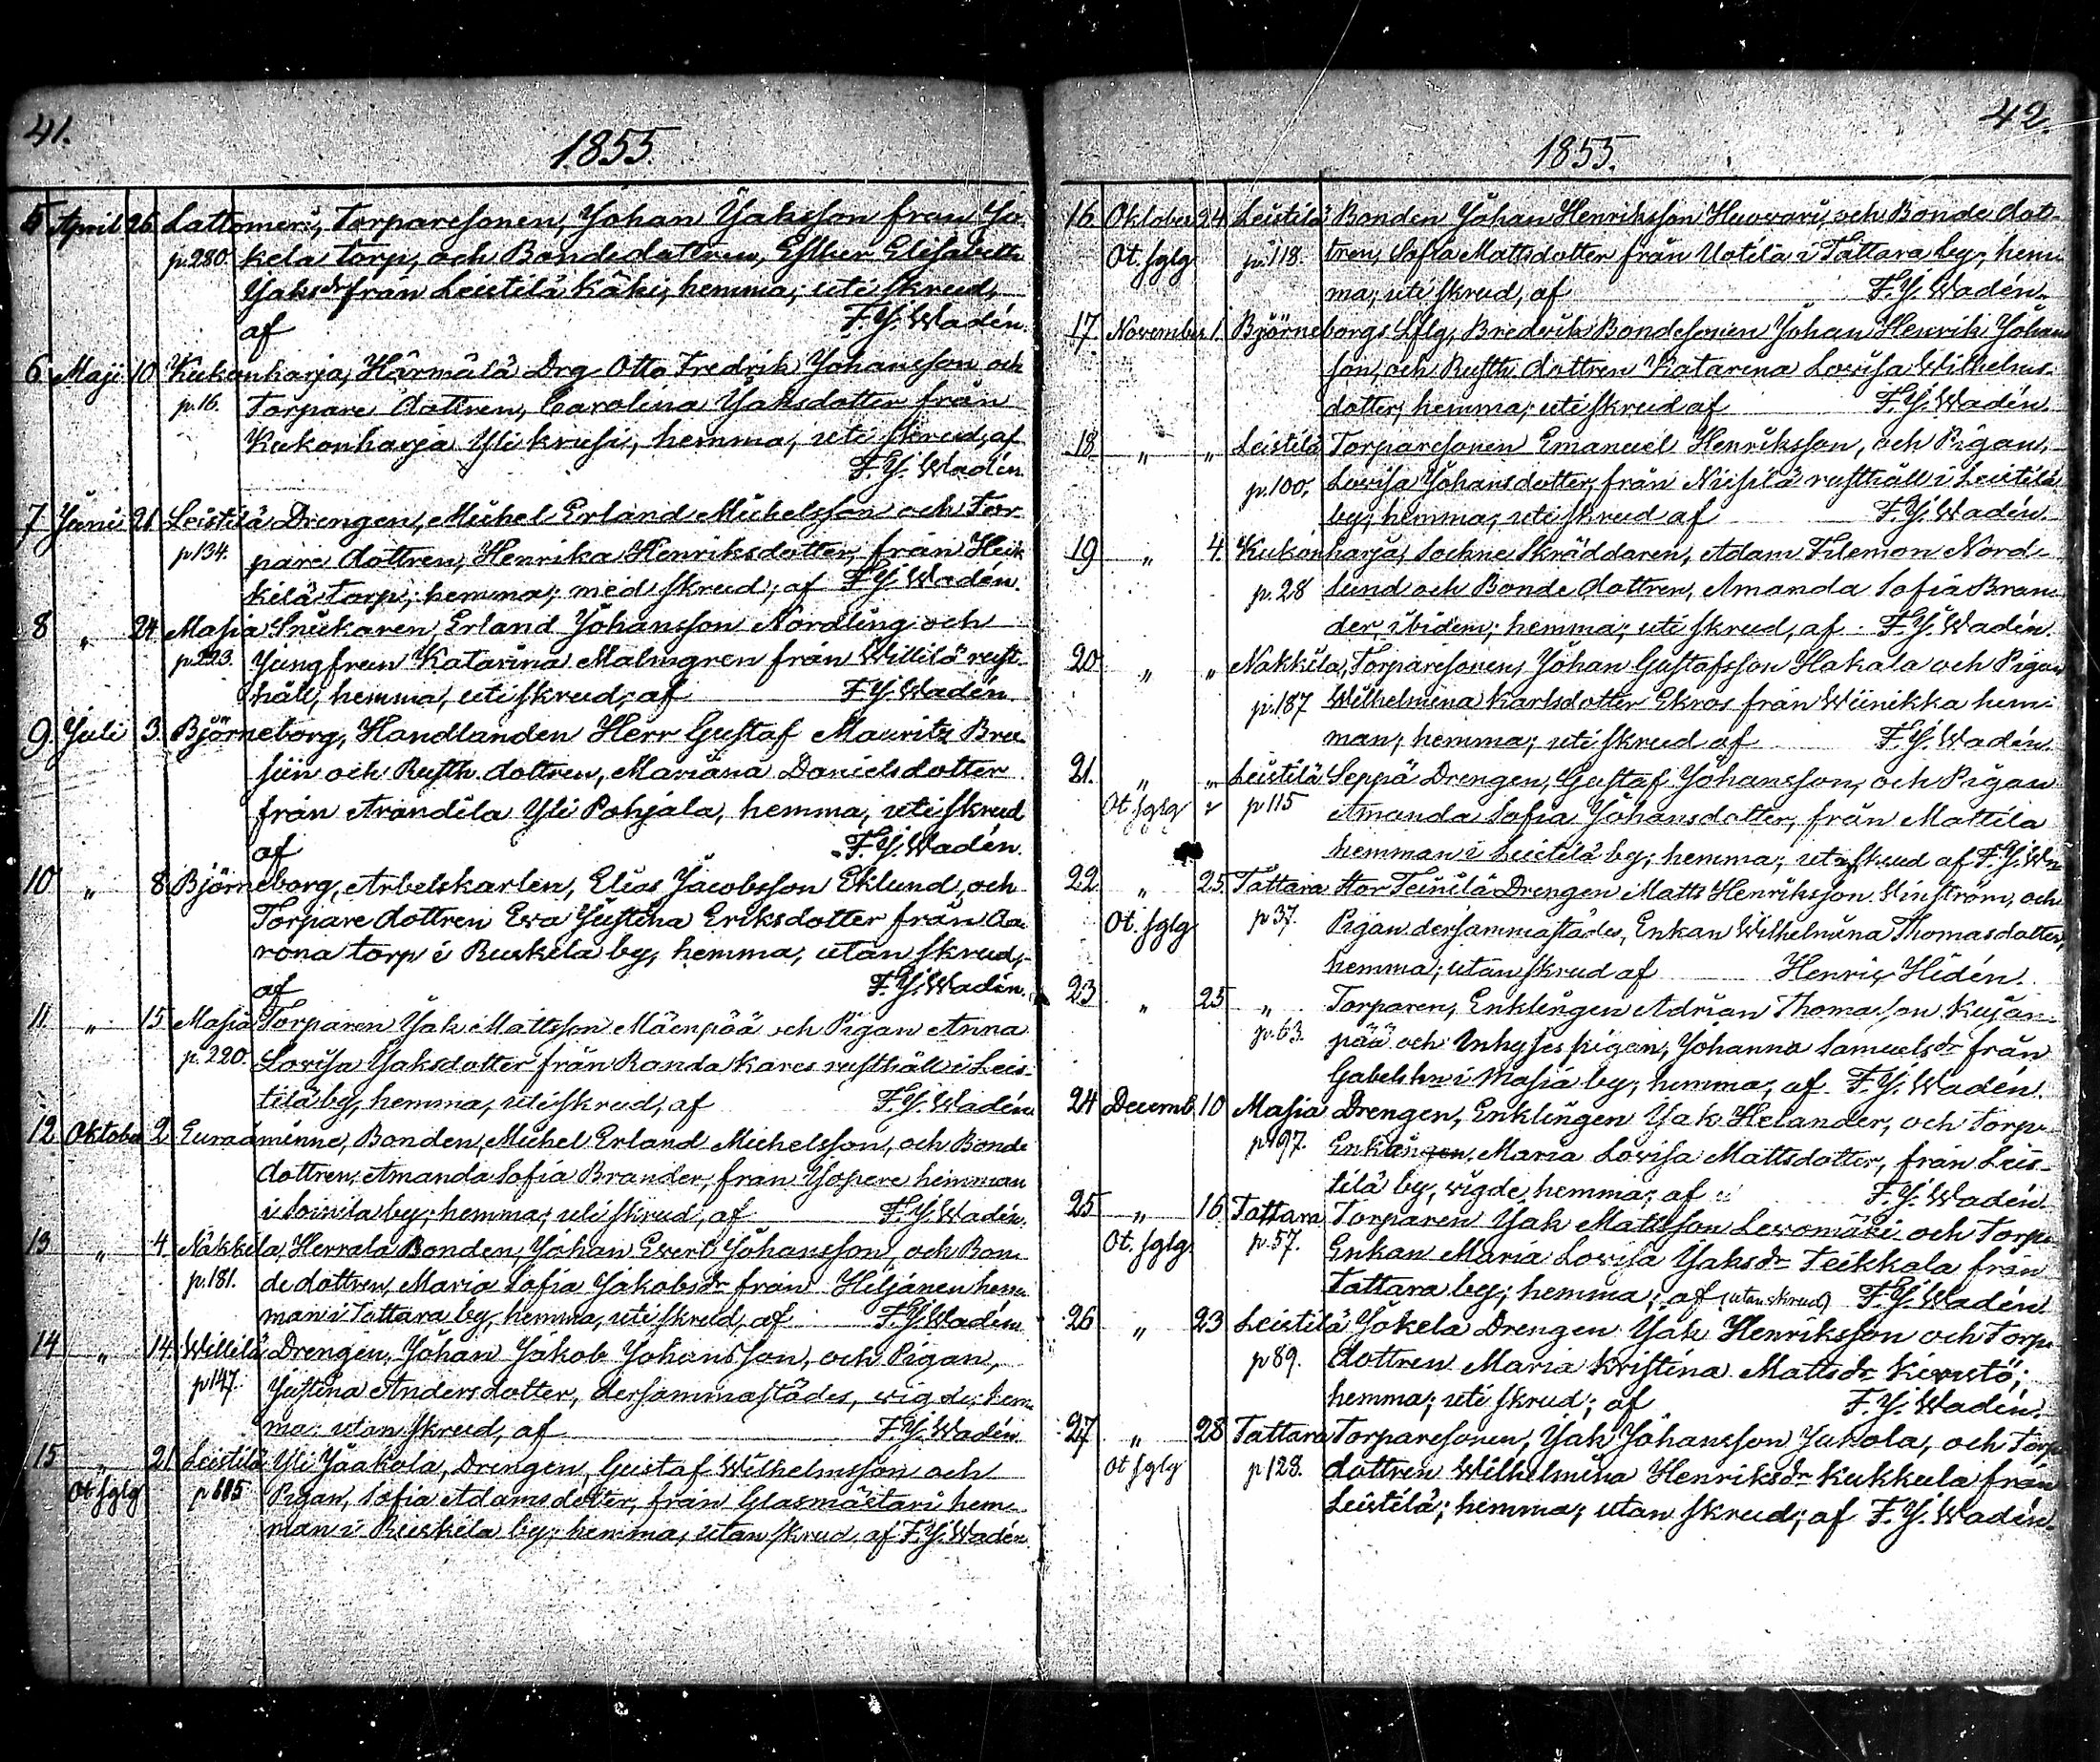 41.
1855.
5 April 26 Lattomeri, Torparesonen, Johan Jaksson från Jo-
p.280. kela torp, och Bondedottren, Esther Elisabeth
Jaksdr från Leistilä Käki, hemma; uti skrud,
af F. J. Wadén.
6 Maji 10 Kukonharja, Härmälä Drg Otto Fredrik Johansson och
p.16. Torpare dottren, Carolina Jaksdotter från
Kukonharja Yli krusi, hemma, uti skrud, af
F. J. Wadén.
7 Juni 21 Leistilä Drengen, Michel Erland Michelsson och Tor-
p134. pare dottren, Henrika Henriksdotter, från Heik
kilä torp; hemma; med skrud; af F. J. Wadén.
8 " 24 Masia Snickaren, Erland Johansson Nordling och
p.223. Jungfrun Katarina Malmgren från Willilä rust-
håll, hemma, uti skrud, af F. J. Wadén.
9. Juli 3 Björneborg, Handlanden Herr Gustaf Mauritz Bru-
siin och Rusth. dottren, Mariana Danielsdotter
från Arandila Yli Pohjala, hemma, uti skrud
af F. J. Wadén.
10 " 8 Björneborg, Arbetskarlen, Elias Jacobsson Eklund, och
Torpare dottren Eva Justina Eriksdotter från Aa
rona torp i Ruskela by, hemma, utan skrud,
af F. J. Wadén.
11 " 15 Masia Torparen Jak Mattsson Mäenpää och Pigan Anna
p.220. Lovisa Jaksdotter från Randa Kares rusthåll i Leis-
tilä by, hemma, uti skrud, af F. J. Wadén
12 Oktober 2 Euraåminne, Bonden, Michel Erland Michelsson, och Bonde
dottren, Amanda Sofia Brander, från Jopere hemman
i Soinila by; hemma; uti skrud, af F. J. Wadén.
13 " 4 Nakkila, Herrala Bonden, Johan Evert Johansson, och Bon-
p.181. de dottren, Maria Sofia Jakobsdr från Hiljanen hem-
man i Tattara by, hemma, uti skrud, af F. J. Wadén
14 " 14 Willilä Drengen, Johan Jakob Johansson, och Pigan,
p147. Justina Andersdotter, dersammastädes, vigde; hem-
ma; utan skrud, af F. J. Wadén.
15 " 21 Leistilä Yli Jaakola, Drengen, Gustaf Wilhelmsson och
Ot. sglg p Pigan, Sofia Adamsdotter, från Glasmästari hem-
man i Ruskela by; hemma, utan skrud, af F. J. Wadén
42.
1855.
16 Oktober 24 Leistilä Bonden Johan Henriksson Huovari, och Bonde dot-
Ot. sglg p.118. tren, Sofia Mattsdotter från Uotila i Tattara by, hem-
ma; uti skrud, af F. J. Wadén.
17. November 1. Björneborgs Lflg, Bredvik Bondesonen Johan Henrik Johans
son, och Rusth. dottren Katarina Lovisa Wilhelms-
dotter, hemma; uti skrud af F. J. Wadén.
18 " " Leistilä Torparesonen Emanuel Henriksson, och Pigan,
p.100. Lovisa Johansdotter, från Niisilä rusthåll i Leistilä
by; hemma; uti skrud af F. J. Wadén.
19 " 4. Kukonharja, Sockne Skräddaren, Adam Filemon Nord-
p.28 lund och Bonde dottren, Amanda Sofia Bran-
der, ibidem; hemma; uti skrud, af F. J. Wadén.
20 " " Nakkila, Torparesonen, Johan Gustafsson Hakala och Pigan
p.187 Wilhelmina Karlsdotter Ekros från Wiinikka hem-
man; hemma; uti skrud af F. J. Wadén.
21. " " Leistilä Seppä Drengen, Gustaf Johansson, och Pigan
Ot. sglg p115 Amanda Sofia Johansdotter, från Mattila
hemman i Leistilä by; hemma; skrud af F. J. Wa
22 " 25 Tattara Stor Teinilä Drengen Matts Henriksson Hinström, och
Ot. sglg p37. Pigan dersammastädes, Enkan Wilhelmina Thomasdotter,
hemma; utan skrud af Henric Hidén.
23 " 25 " Torparen, Enklingen Adrian Thomasson Kujan-
p.63. pää och Inhyses pigan, Johanna Samuelsdr från
i Masia by; hemma; af F. J. Wadén.
24 Decemb. 10 Masia Drengen, Enklingen Jak Helander, och Torp-
p197. Enkan, Maria Lovisa Mattsdotter, från Leis-
tilä by, vigde hemma; af F. J. Wadén
25 " 16 Tattara Torparen Jak Mattsson Levomäki och Torp-
Ot. sglg. p.57. Enkan Maria Lovisa Jaksdr Teikkala från
Tattara by; hemma; af (utan skrud) F. J. Wadén
26 " 23 Leistilä Jokela Drengen Jak Henriksson och Torp-
p89. dottren Maria Kristina Mattsdr Kivistö;
hemma; uti skrud; af F. J. Wadén.
27 " 28 Tattara Torparesonen, Jak Johansson Junola, och Torp-
Ot sglg p128. dottren Wilhelmina Henriksdr Kukkula från
Leistilä; hemma; utan skrud; af F. J. Wadén.